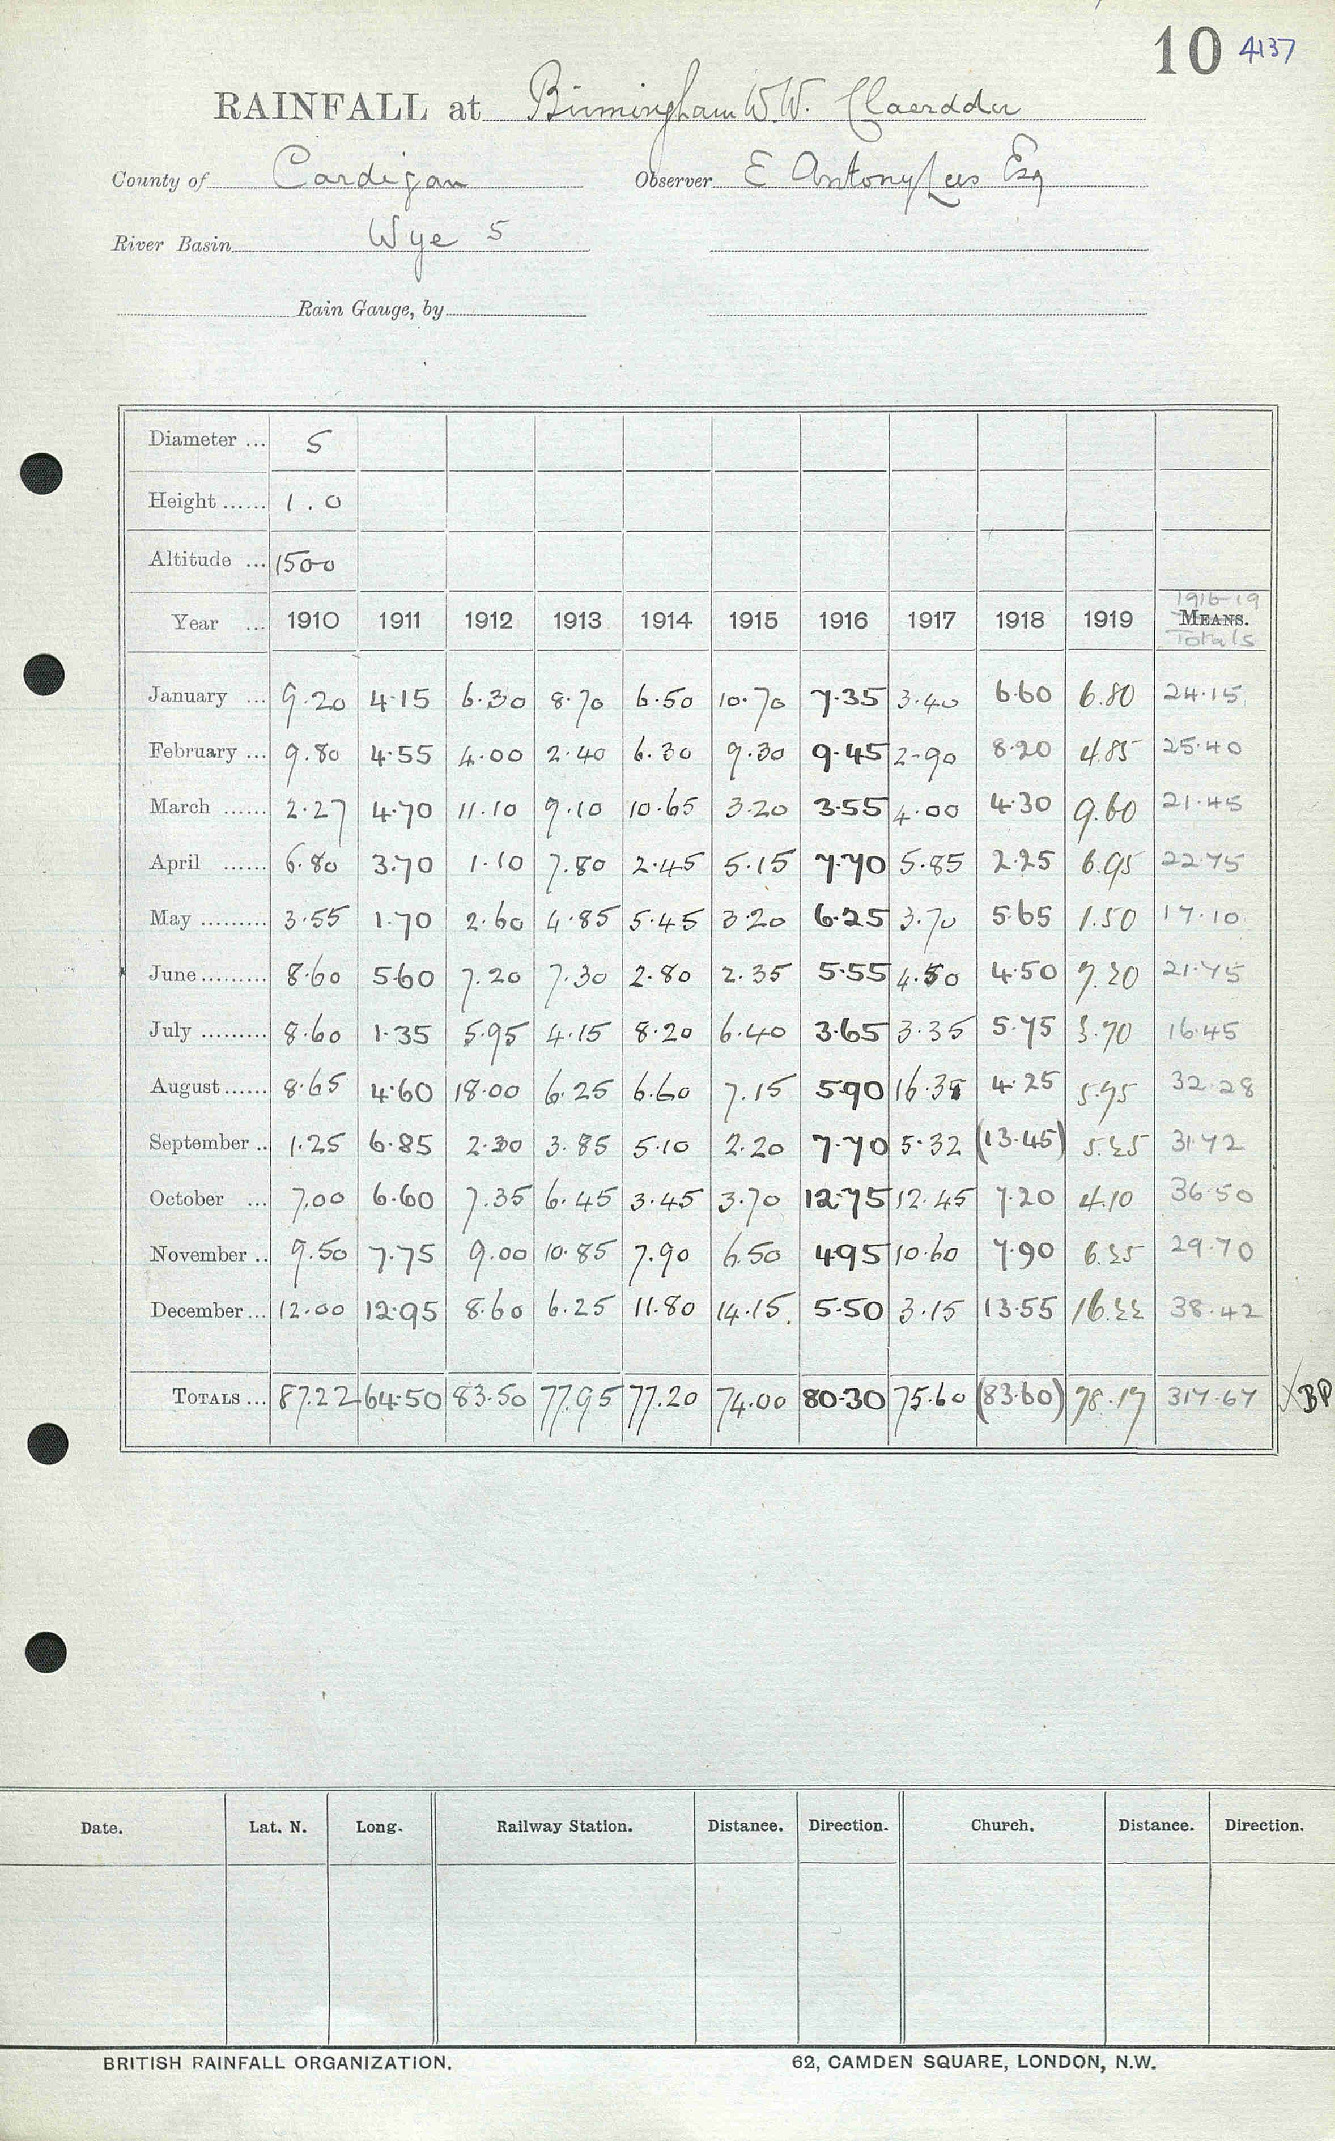 10 4137
RAINFALL at Birmingham W.W. Claerddu
County of Cardigan Observer E Antony Lees Esq
River Basin Wye 5
Rain Gauge, by
Diameter ... 5
Height ...... 1.0
Altitude ... 1500
1916-19
Year ... 1910 1911 1912 1913 1914 1915 1916 1917 1918 1919 MEANS.
Totals
January ... 9.20 4.15 6.30 8.70 6.50 10.70 7.35 3.40 6.60 6.80 24.15
February ... 9.80 4.55 4.00 2.40 6.30 9.30 9.45 2.90 8.20 4.85 25.40
March ...... 2.27 4.70 11.10 9.10 10.65 3.20 3.55 4.00 4.30 9.60 21.45
April ...... 6.80 3.70 1.10 7.80 2.45 5.15 7.70 5.85 2.25 6.95 22.75
May ......... 3.55 1.70 2.60 4.85 5.45 3.20 6.25 3.70 5.65 1.50 17.10
June ......... 8.60 5.60 7.20 7.30 2.80 2.35 5.55 4.50 4.50 7.20 21.75
July ......... 8.60 1.35 5.95 4.15 8.20 6.40 3.65 3.35 5.75 3.70 16.45
August ...... 8.65 4.60 18.00 6.25 6.60 7.15 5.90 16.38 4.25 5.95 32.28
September .. 1.25 6.85 2.30 3.85 5.10 2.20 7.70 5.32 (13.45) 5.25 31.72
October ... 7.00 6.60 7.35 6.45 3.45 3.70 12.75 12.45 7.20 4.10 36.50
November .. 9.50 7.75 9.00 10.85 7.90 6.50 4.95 10.60 7.90 6.25 29.70
December ... 12.00 12.95 8.60 6.25 11.80 14.15 5.50 3.15 13.55 16.22 38.42
TOTALS ... 87.22 64.50 83.50 77.95 77.20 74.00 80.30 75.60 (83.60) 78.17 317.67 X BP
Date. Lat. N. Long. Railway Station. Distance. Direction. Church. Distance. Direction.
BRITISH RAINFALL ORGANIZATION. 62, CAMDEN SQUARE, LONDON, N.W.